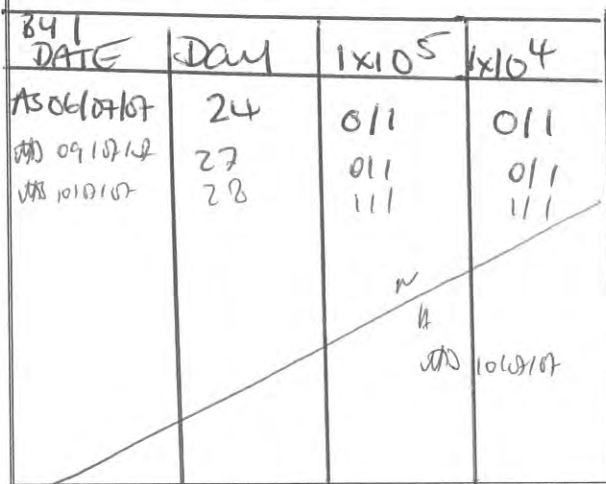 BY /
DATE Day 1x10⁵ 1x10⁴
AS 06/07/07 24 0/1 0/1
09/07/07 27 0/1 0/1
10/07/07 28 1/1 1/1
N
A
10/07/07